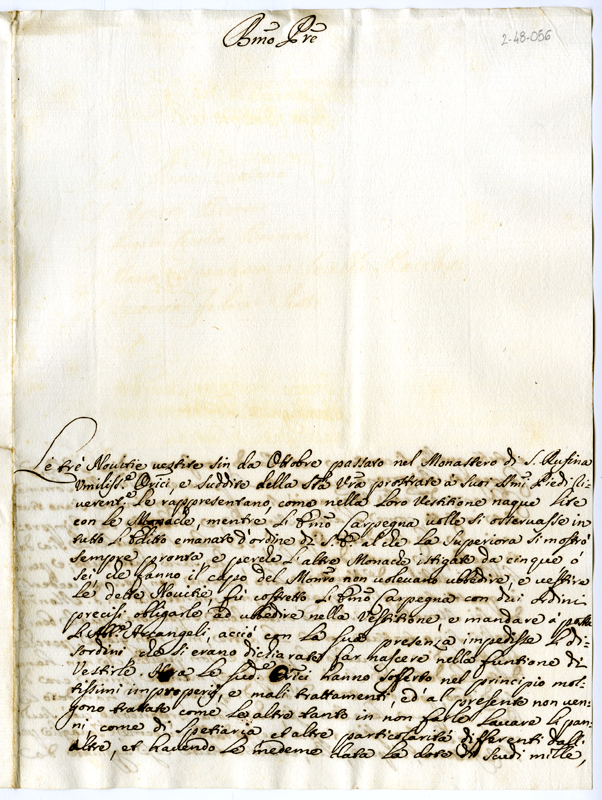 Bmo Pre
2-48-056
Le trè Novitie vestite sin da Ottobre passato nel Monastero di S. Rufina
Umiliss.e Orici, e suddite della Stà Vrà prostrate à suoi SSmi Piedi ri-
verent.e Le rappresentano, come nella Loro Vestitione naque Lite
con le Monache, mentre Il Emo Carpegna volle si osservasse in
tutto L'editto emanato d'ordine di S. B. al che La Superiora si mostrò
sempre pronta, e perche L'altre Monache istigate da cinque ò
sei che fanno il capo del Monro non volevano ubedire, e vestire
Le dette Novitie, fù costretto L'Emo Carpegna con dui ordini
precisi obligarle ad ubbedire nella Vestitione, e mandare à posta
Arcangeli, acciò con La sua presenza impedisse Li di-
sordini che si erano dichiarate far nascere nella funtione di
Vestirle. Hora Le sud.e Orici hanno sofferto nel principio mol-
tissimi improperij, e mali trattamenti, ed' al presente non ven-
gono trattate come Le altre tanto in non farle Lavare Li pan-
ni come di Spetiaria, et altre particolarità differenti dall'
altre, et havendo Le medeme data La dote di scudi mille,